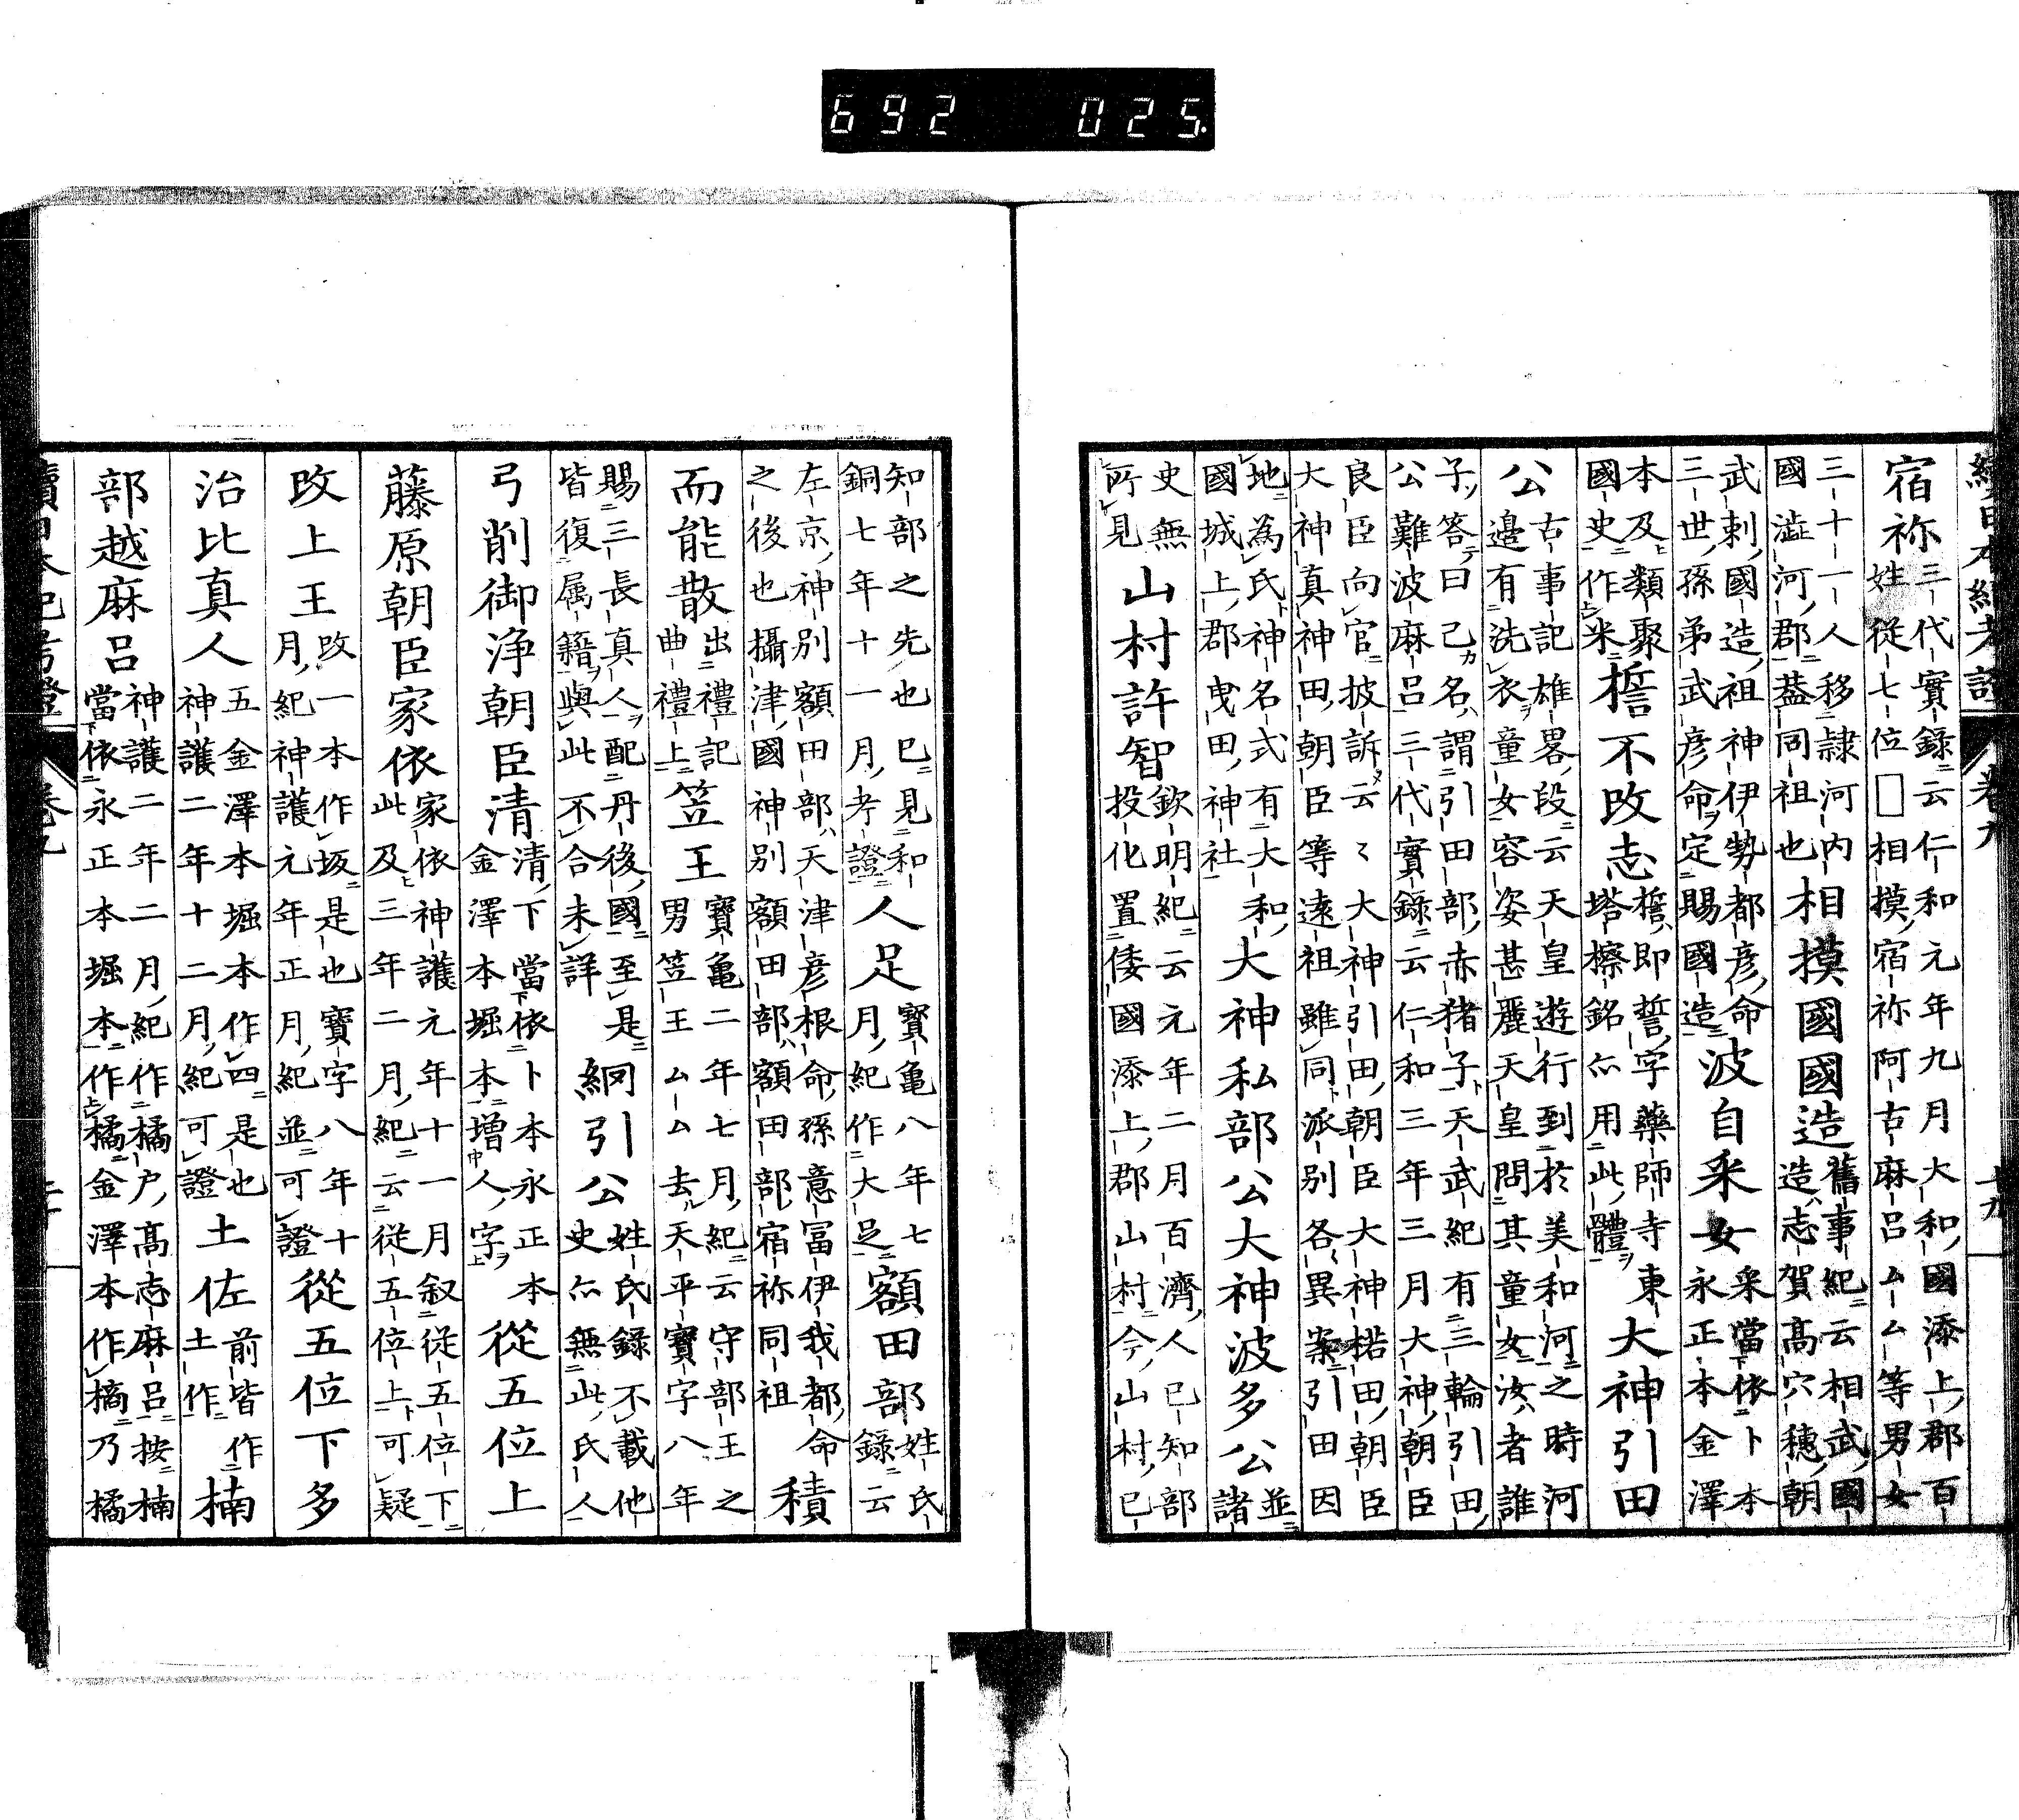 續日本紀考證 卷九 十九
宿祢三代實錄云仁和元年九月大和國添上郡百姓從七位□相摸宿祢阿古麻呂ムム等男女
三十一人移隷河内國澁河郡葢同祖也相摸國國造舊事紀云相武國造志賀高穴穗朝
武剌國造祖神伊勢都彦命三世孫弟武彦命定賜國造波自采女采當依卜本永正本金澤
本及類聚國史作米不攺志即誓字藥師寺東塔檫銘亦用此體大神引田
公古事記雄畧段云天皇遊行到於美和河之時河邊有洗衣童女容姿甚麗天皇問其童女汝者誰
子答曰己名謂引田部赤猪子天武紀有三輪引田公難波麻呂三代實錄云仁和三年三月大神朝臣
良臣向官披訴云〻大神引田朝臣大神楉田朝臣大神真神田朝臣等遠祖雖同派別各異案引田因
地為氏神名式有大和國城上郡曳田神社大神私部公大神波多公並諸
史無所見山村許智欽明紀云元年二月百濟人巳知部投化置倭國添上郡山村今山村巳
知部之先也巳見和銅七年十一月紀考證人足寶龜八年七月紀作大足額田部姓氏錄云
左京神別額田部天津彦根命孫意冨伊我都命之後也攝津國神別額田部額田部宿祢同祖積
而能散出禮記曲禮上笠王寶龜二年七月紀云守部王之男笠王ムム去天平寶字八年
賜三長真人配丹後國至是皆復属籍與此不合未詳網引公姓氏錄不載他史亦無此氏人
弓削御浄朝臣清清下當依卜本永正本金澤本堀本增人字從五位上
藤原朝臣家依家依神護元年十一月叙從五位下此及三年二月紀云從五位上可疑
攺上王攺一本作坂是也寶字八年十月紀神護元年正月紀並可證從五位下多
治比真人五金澤本堀本作四是也神護二年十二月紀可證土佐前皆作土作楠
部越麻呂神護二年二月紀作橘户高志麻呂按楠當依永正本堀本作橘金澤本作樀乃橘